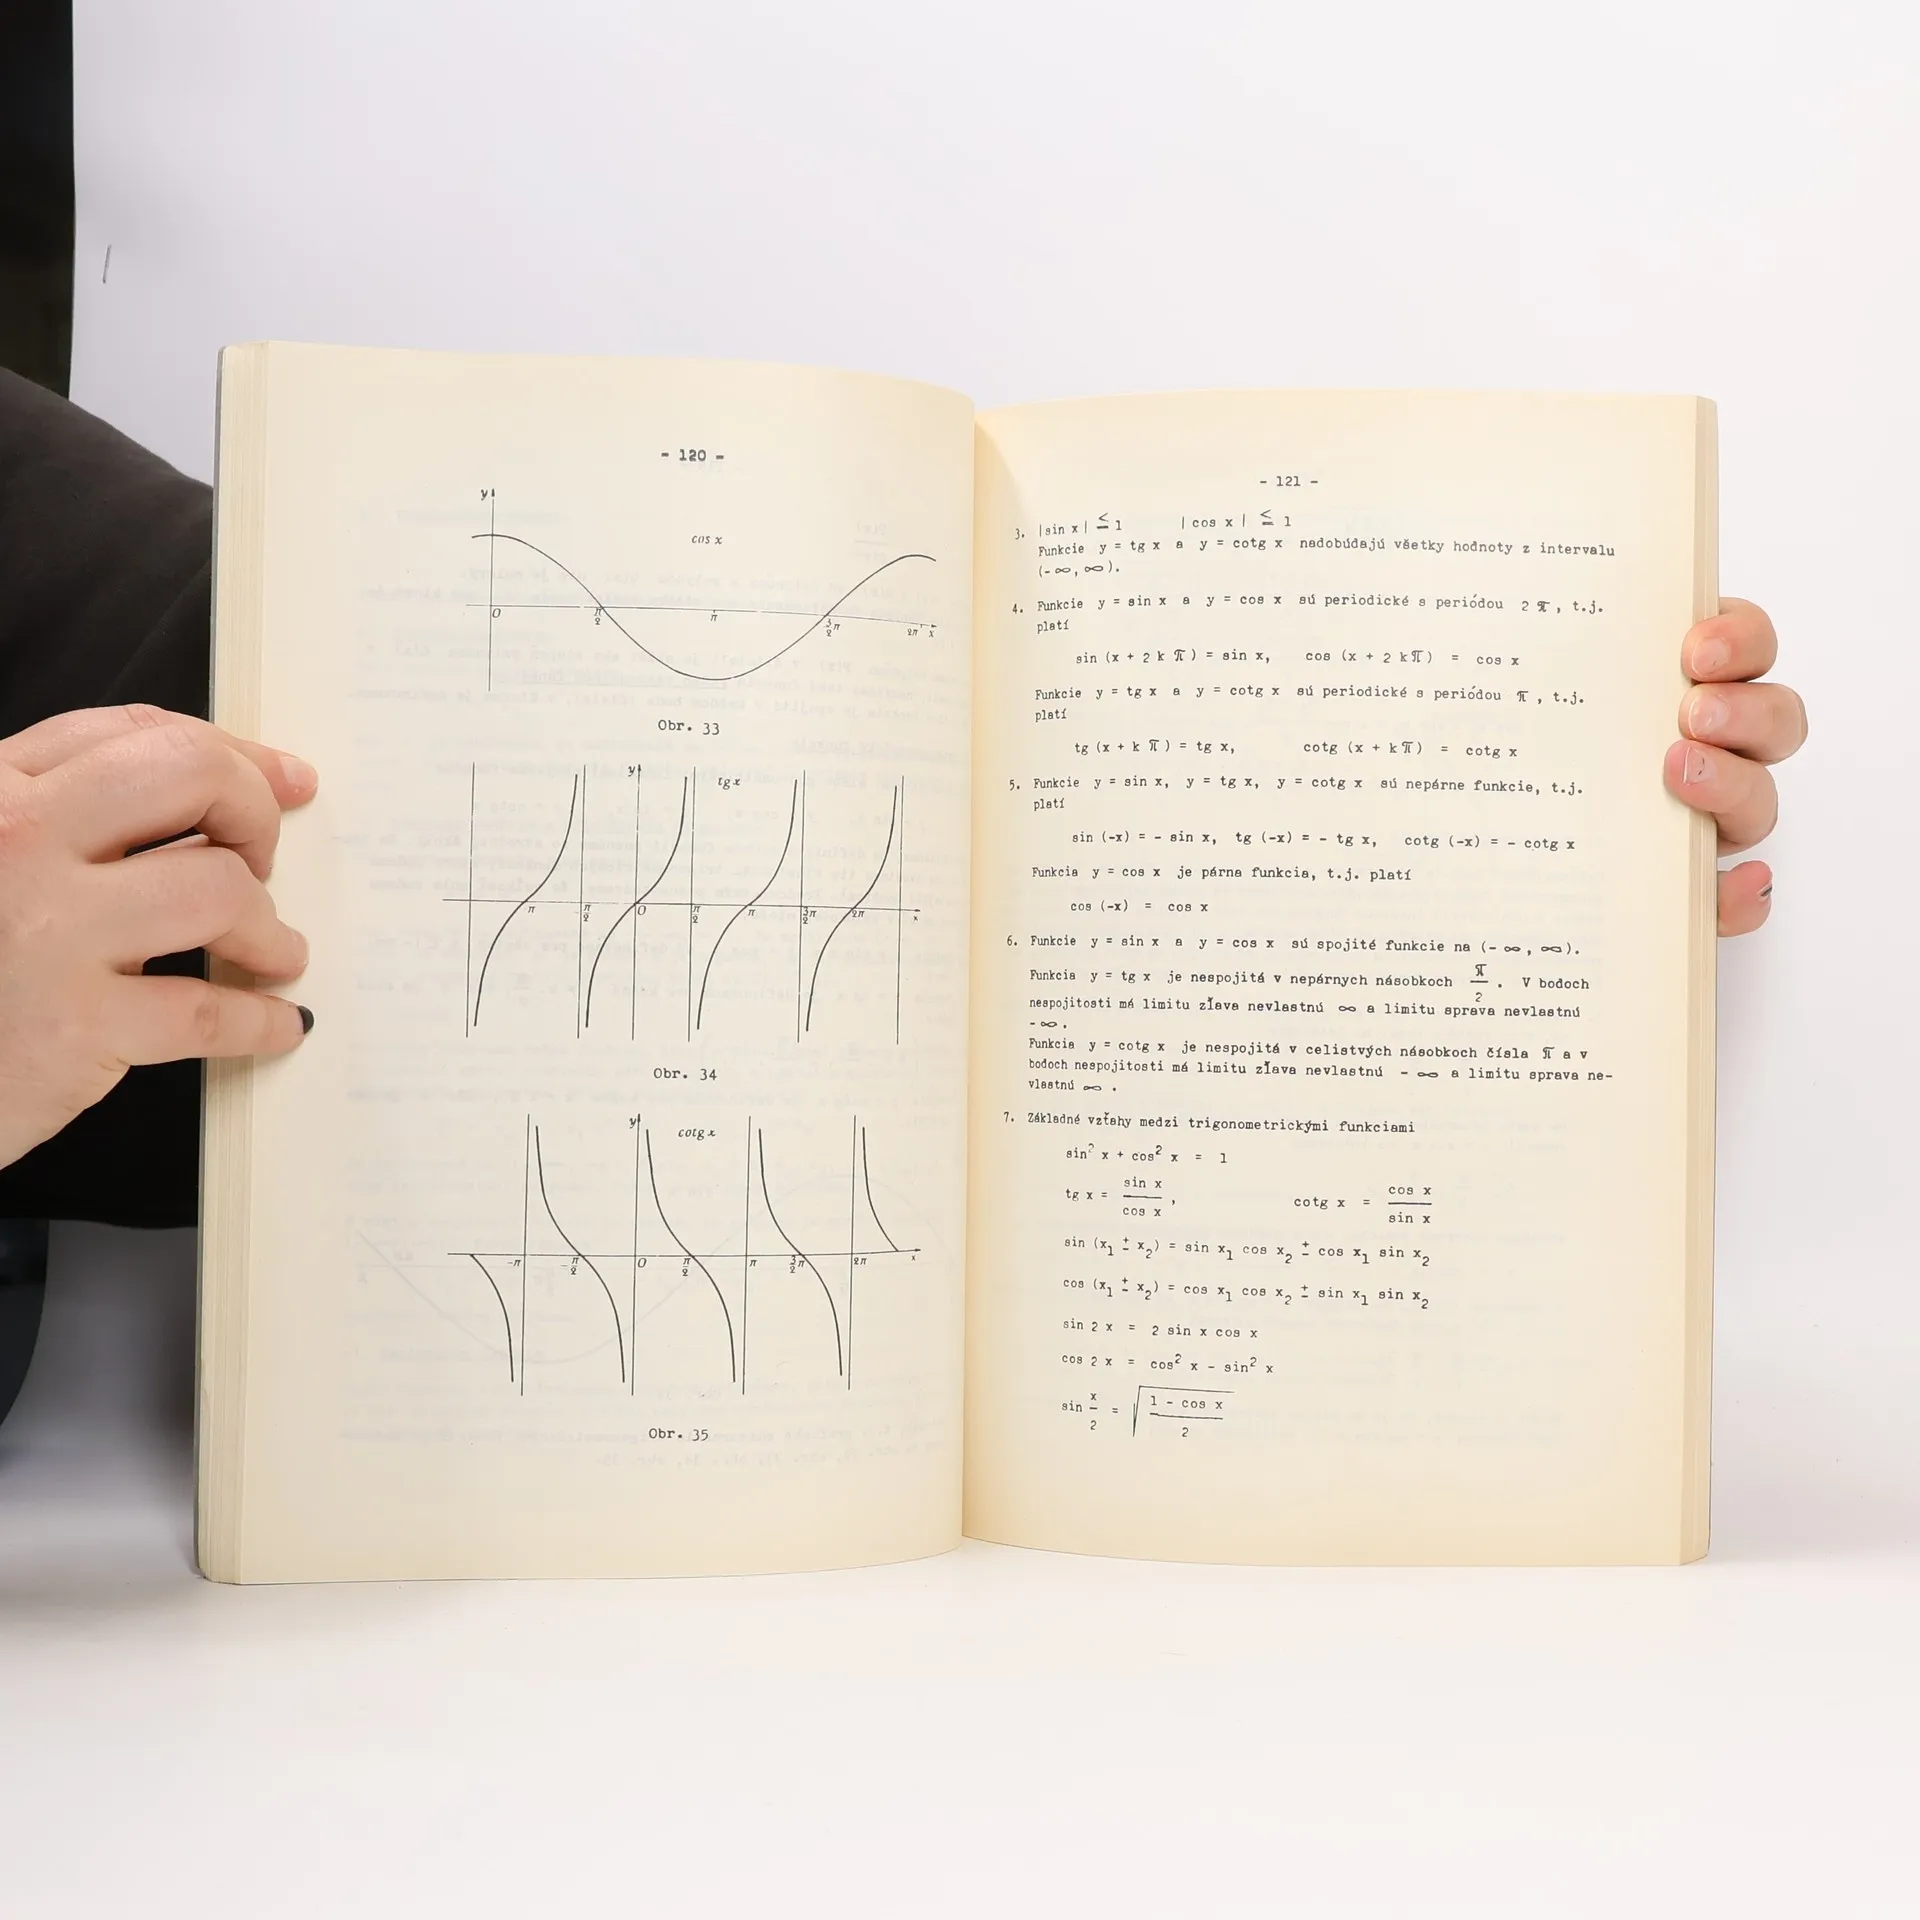 - 120 -
y
cos x
O π/2 π 3/2 π 2π x
Obr. 33
y
tg x
π -π/2 O π/2 π 3/2 π 2π x
Obr. 34
y
cotg x
-π -π/2 O π/2 π 3/2 π 2π x
Obr. 35
- 121 -
3. |sin x| ≤ 1 |cos x| ≤ 1
Funkcie y = tg x a y = cotg x nadobúdajú všetky hodnoty z intervalu
(-∞, ∞).
4. Funkcie y = sin x a y = cos x sú periodické s periódou 2 π, t.j.
platí
sin (x + 2 k π) = sin x, cos (x + 2 kπ) = cos x
Funkcie y = tg x a y = cotg x sú periodické s periódou π, t.j.
platí
tg (x + k π) = tg x, cotg (x + kπ) = cotg x
5. Funkcie y = sin x, y = tg x, y = cotg x sú nepárne funkcie, t.j.
platí
sin (-x) = - sin x, tg (-x) = - tg x, cotg (-x) = - cotg x
Funkcia y = cos x je párna funkcia, t.j. platí
cos (-x) = cos x
6. Funkcie y = sin x a y = cos x sú spojité funkcie na (-∞, ∞).
Funkcia y = tg x je nespojitá v nepárnych násobkoch π/2. V bodoch
nespojitosti má limitu zľava nevlastnú ∞ a limitu sprava nevlastnú
-∞.
Funkcia y = cotg x je nespojitá v celistvých násobkoch čísla π a v
bodoch nespojitosti má limitu zľava nevlastnú - ∞ a limitu sprava ne-
vlastnú ∞ .
7. Základné vzťahy medzi trigonometrickými funkciami
sin² x + cos² x = 1
tg x = sin x / cos x , cotg x = cos x / sin x
sin (x₁ ± x₂) = sin x₁ cos x₂ ± cos x₁ sin x₂
cos (x₁ ± x₂) = cos x₁ cos x₂ ± sin x₁ sin x₂
sin 2 x = 2 sin x cos x
cos 2 x = cos² x - sin² x
sin x/2 = √((1 - cos x)/2)